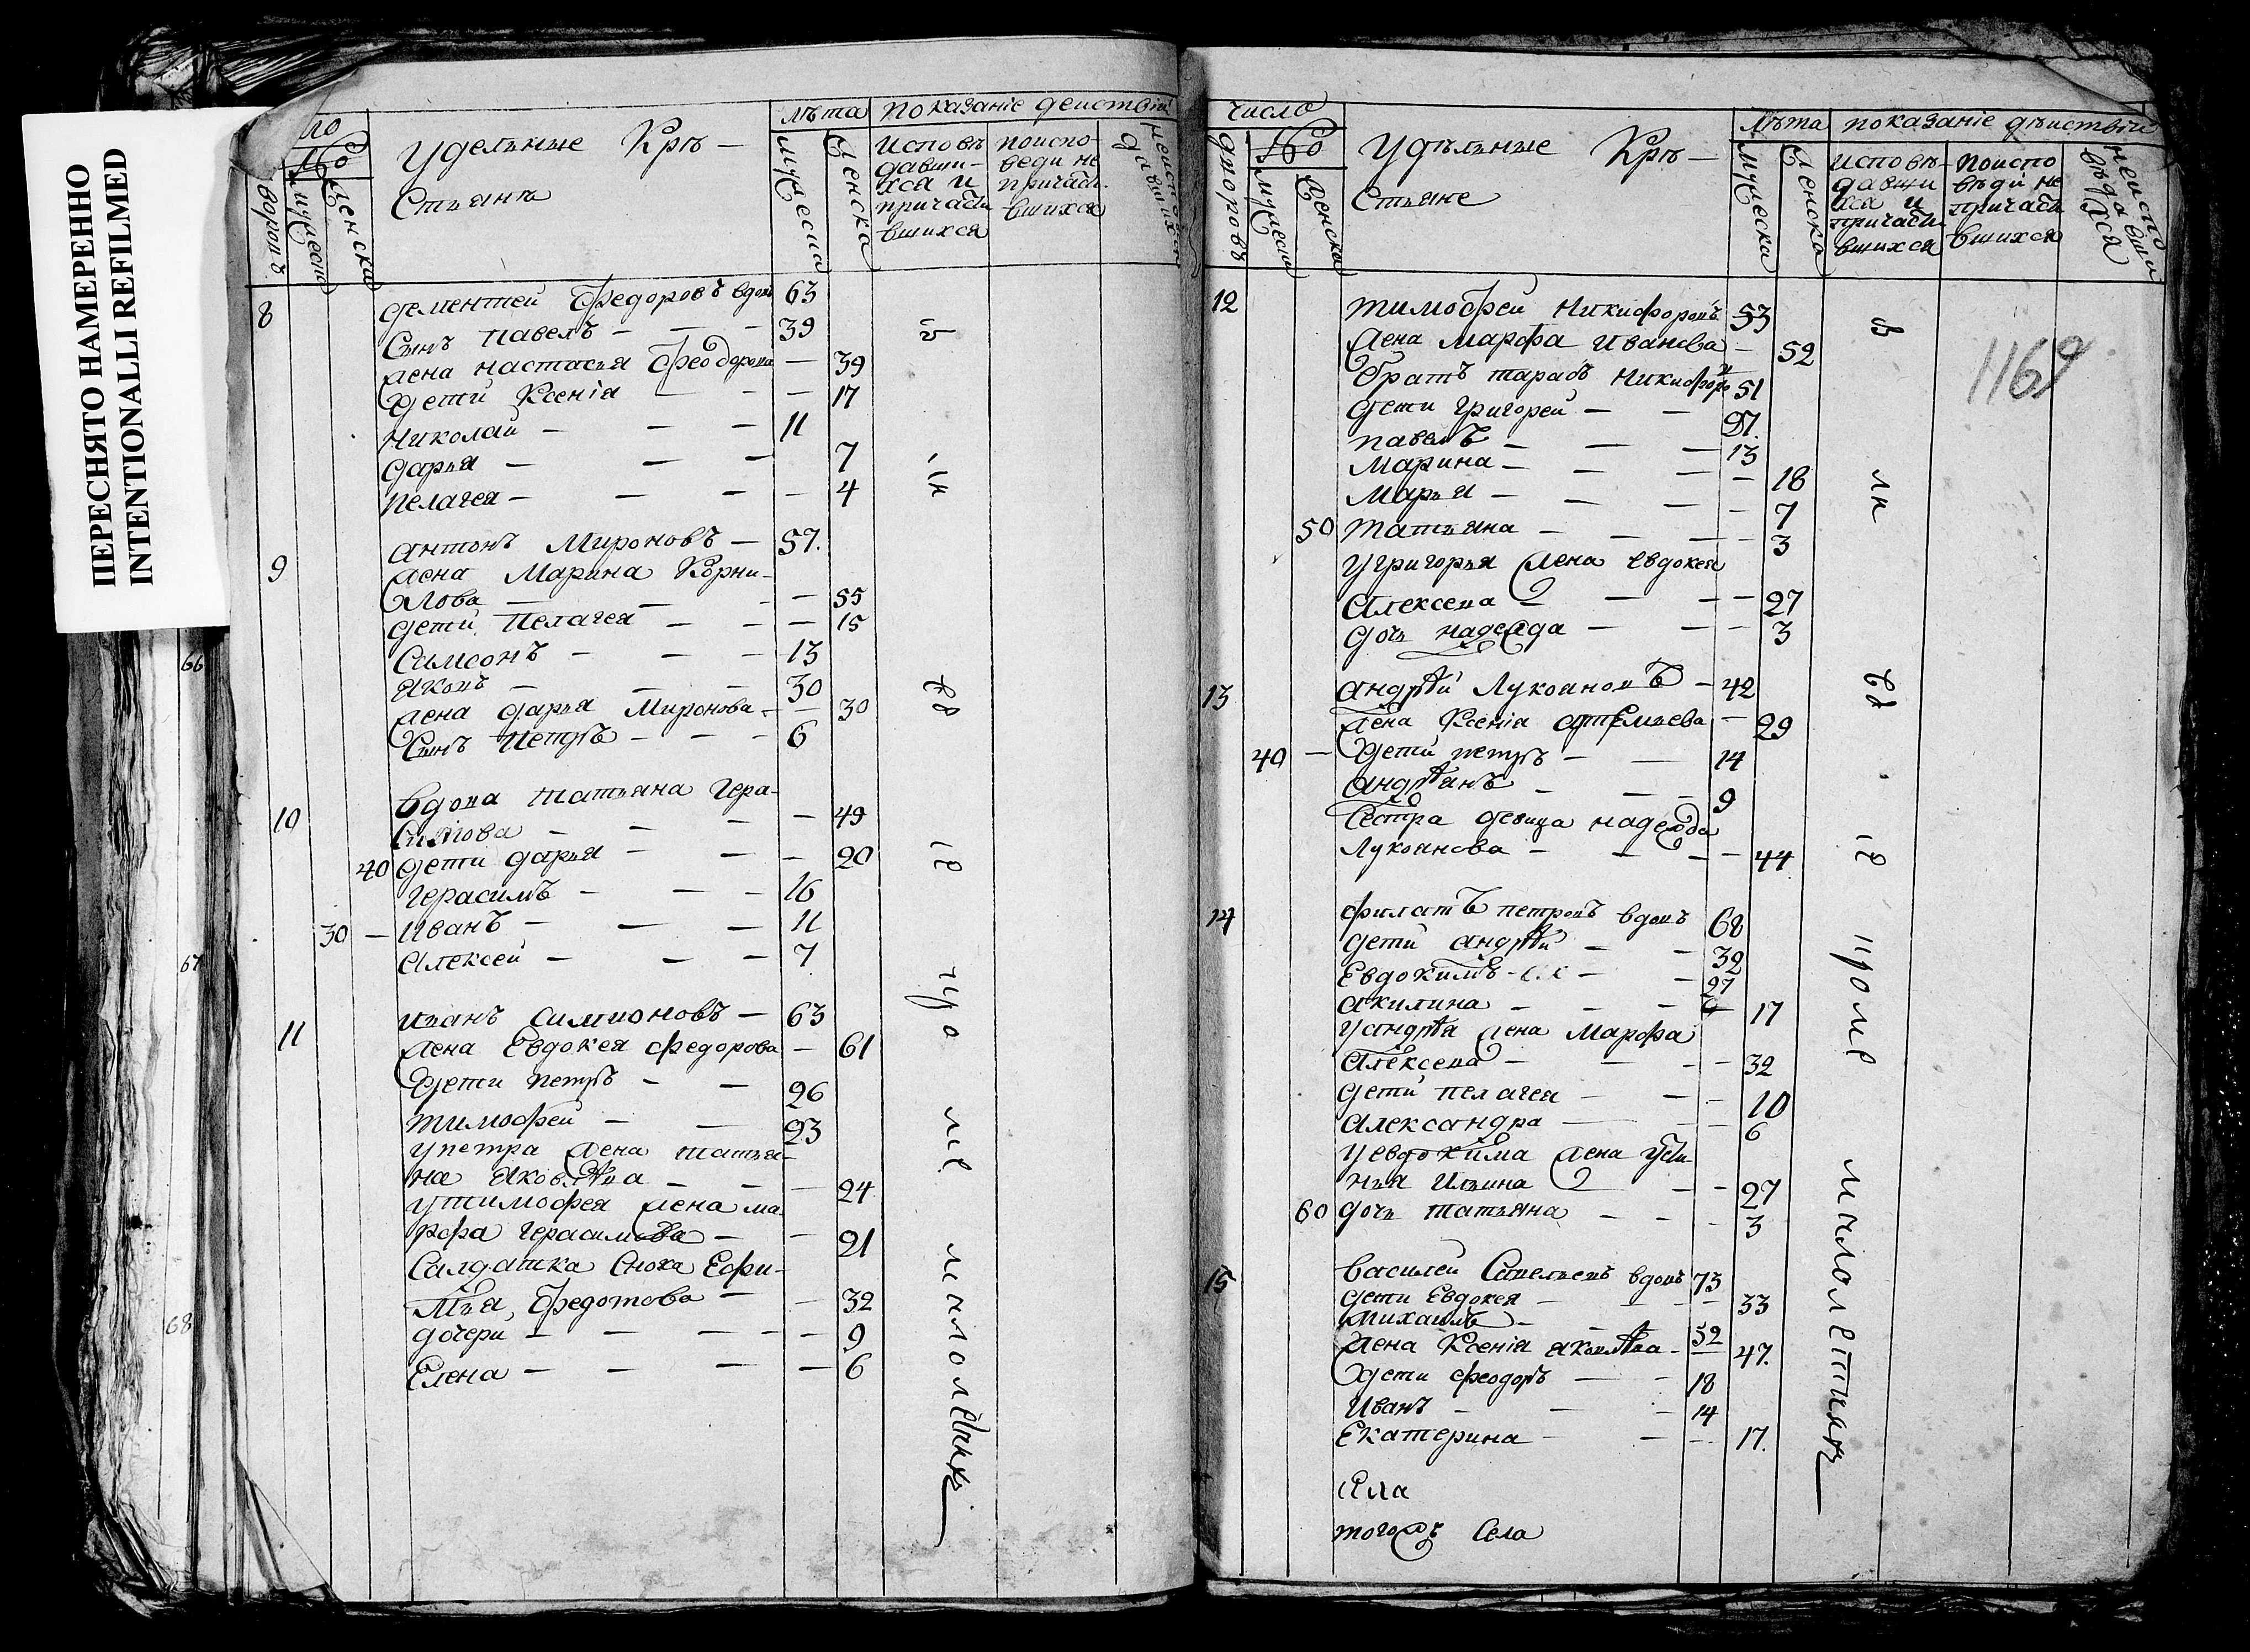 ПЕРЕСНЯТО НАМЕРЕННО
INTENTIONALLI REFILMED
66
67
68
ло
лѣта показаніе деиствій
Удельные Кре-
стьянъ
мужеска
женска
исповѣ
давши-
хся и
причасти
вшихся
поиспо-
веди не
причасти
вшихся
8 дементей Федоровъ вдовъ 63
Сынъ павелъ - - - 39
жена настасья Феодорова - 39
дети Ксенія - - - 17
Николай - - - 11
дарья - - - 7
пелагея - - - 4
9 антонъ Мироновъ - 57.
жена Марина Корни-
лова - - - 55
дети Пелагея - - - 15
Симеонъ - - - 13
яковъ - - - 30
жена дарья Миронова - 30
Сынъ Петръ - - - 6
10 вдова татьяна Гера-
симова - - - 49
40 дети дарья - - - 20
герасимъ - - - 16
30 - Иванъ - - - 11
Алексей - - - 7
11 иванъ симионовъ - 63
жена Евдокея федорова - 61
дети петръ - - 26
тимофей - - 23
упетра жена татья-
на яковлѣва - - - 24
утимофея жена ма-
рфа герасимова - - 21
Салдатка Сноха Ефи-
мья Федотова - - 32
дочери - - - - 9
Елена - - - - 6
малолетныхъ
число
лѣта показаніе дѣиствій
Удѣльные Крѣ-
стьяне
дворовъ
мужеска
женска
мужеска
женска
исповѣ-
давши
хся и
причасти
вшихся
поиспо
вѣди не
причасти
вшихся
неиспо
вѣдавши
хся
1169
12 тимофей Никифоровъ 53
жена Марфа иванова - 52
братъ тарасъ Никифоровъ 51
дети григорей - - 27.
павелъ - - - 13
Марина - - - 18
Марья - - - 7
50 татьяна - - - 3
угригорья жена евдокея
Алексева - - - 27
дочь надежда - - - 3
13 андрѣй Лукоановъ - 42
жена Ксеніа артемьева - 29
40 - дети петръ - - 14
андрѣянъ - - - 9
сестра девица надежда
Лукоанова - - - 44
14 филатъ петровъ вдовъ 68
дети андрѣй - - 32
Евдокимъ - - 27
акилина - - - 17
уандрѣя жена Марфа
Алексева - - - 32
дети пелагея - - - 10
александра - - 6
уевдокима жена Усти-
нья Ильина - - 27
60 дочь татьяна - - - 3
15 василей Савельевъ вдовъ 73
дети Евдокея - - - 33
михаилъ - - 52
жена Ксенія яковлѣва - 47.
дети феодоръ - - 18
Иванъ - - - 14
Екатерина - - - 17.
кроме
малолетныхъ
тогожъ Села